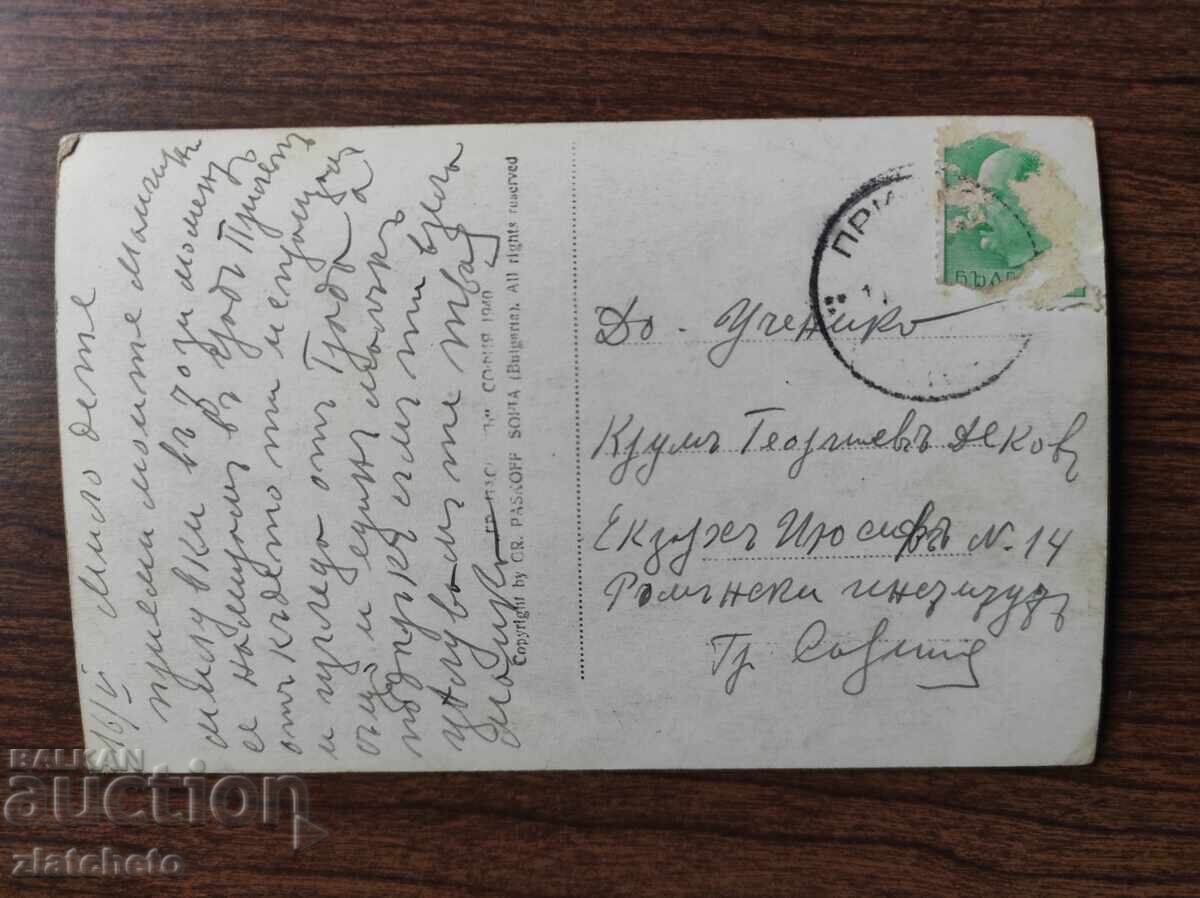 16/V Мило дете
приеми моите майчини
милувки въ този моментъ
се намирамъ въ градъ Прилепъ
отъ където ти изпращамъ
и изгледа отъ града а
още и единъ малъкъ
подаръкъ съмъ ти взела
целувамъ те твоя
майка
СОФИЯ 1940
Copyright by GR. PASKOFF SOFIA (Bulgaria). All rights reserved
ПРИ
БЪЛГ
До. Ученика
Крумъ Георгиевъ Деков
Екзархъ Иосифъ N. 14
Ромънски институтъ
Гр. София
BALKAN
auction
zlatcheto